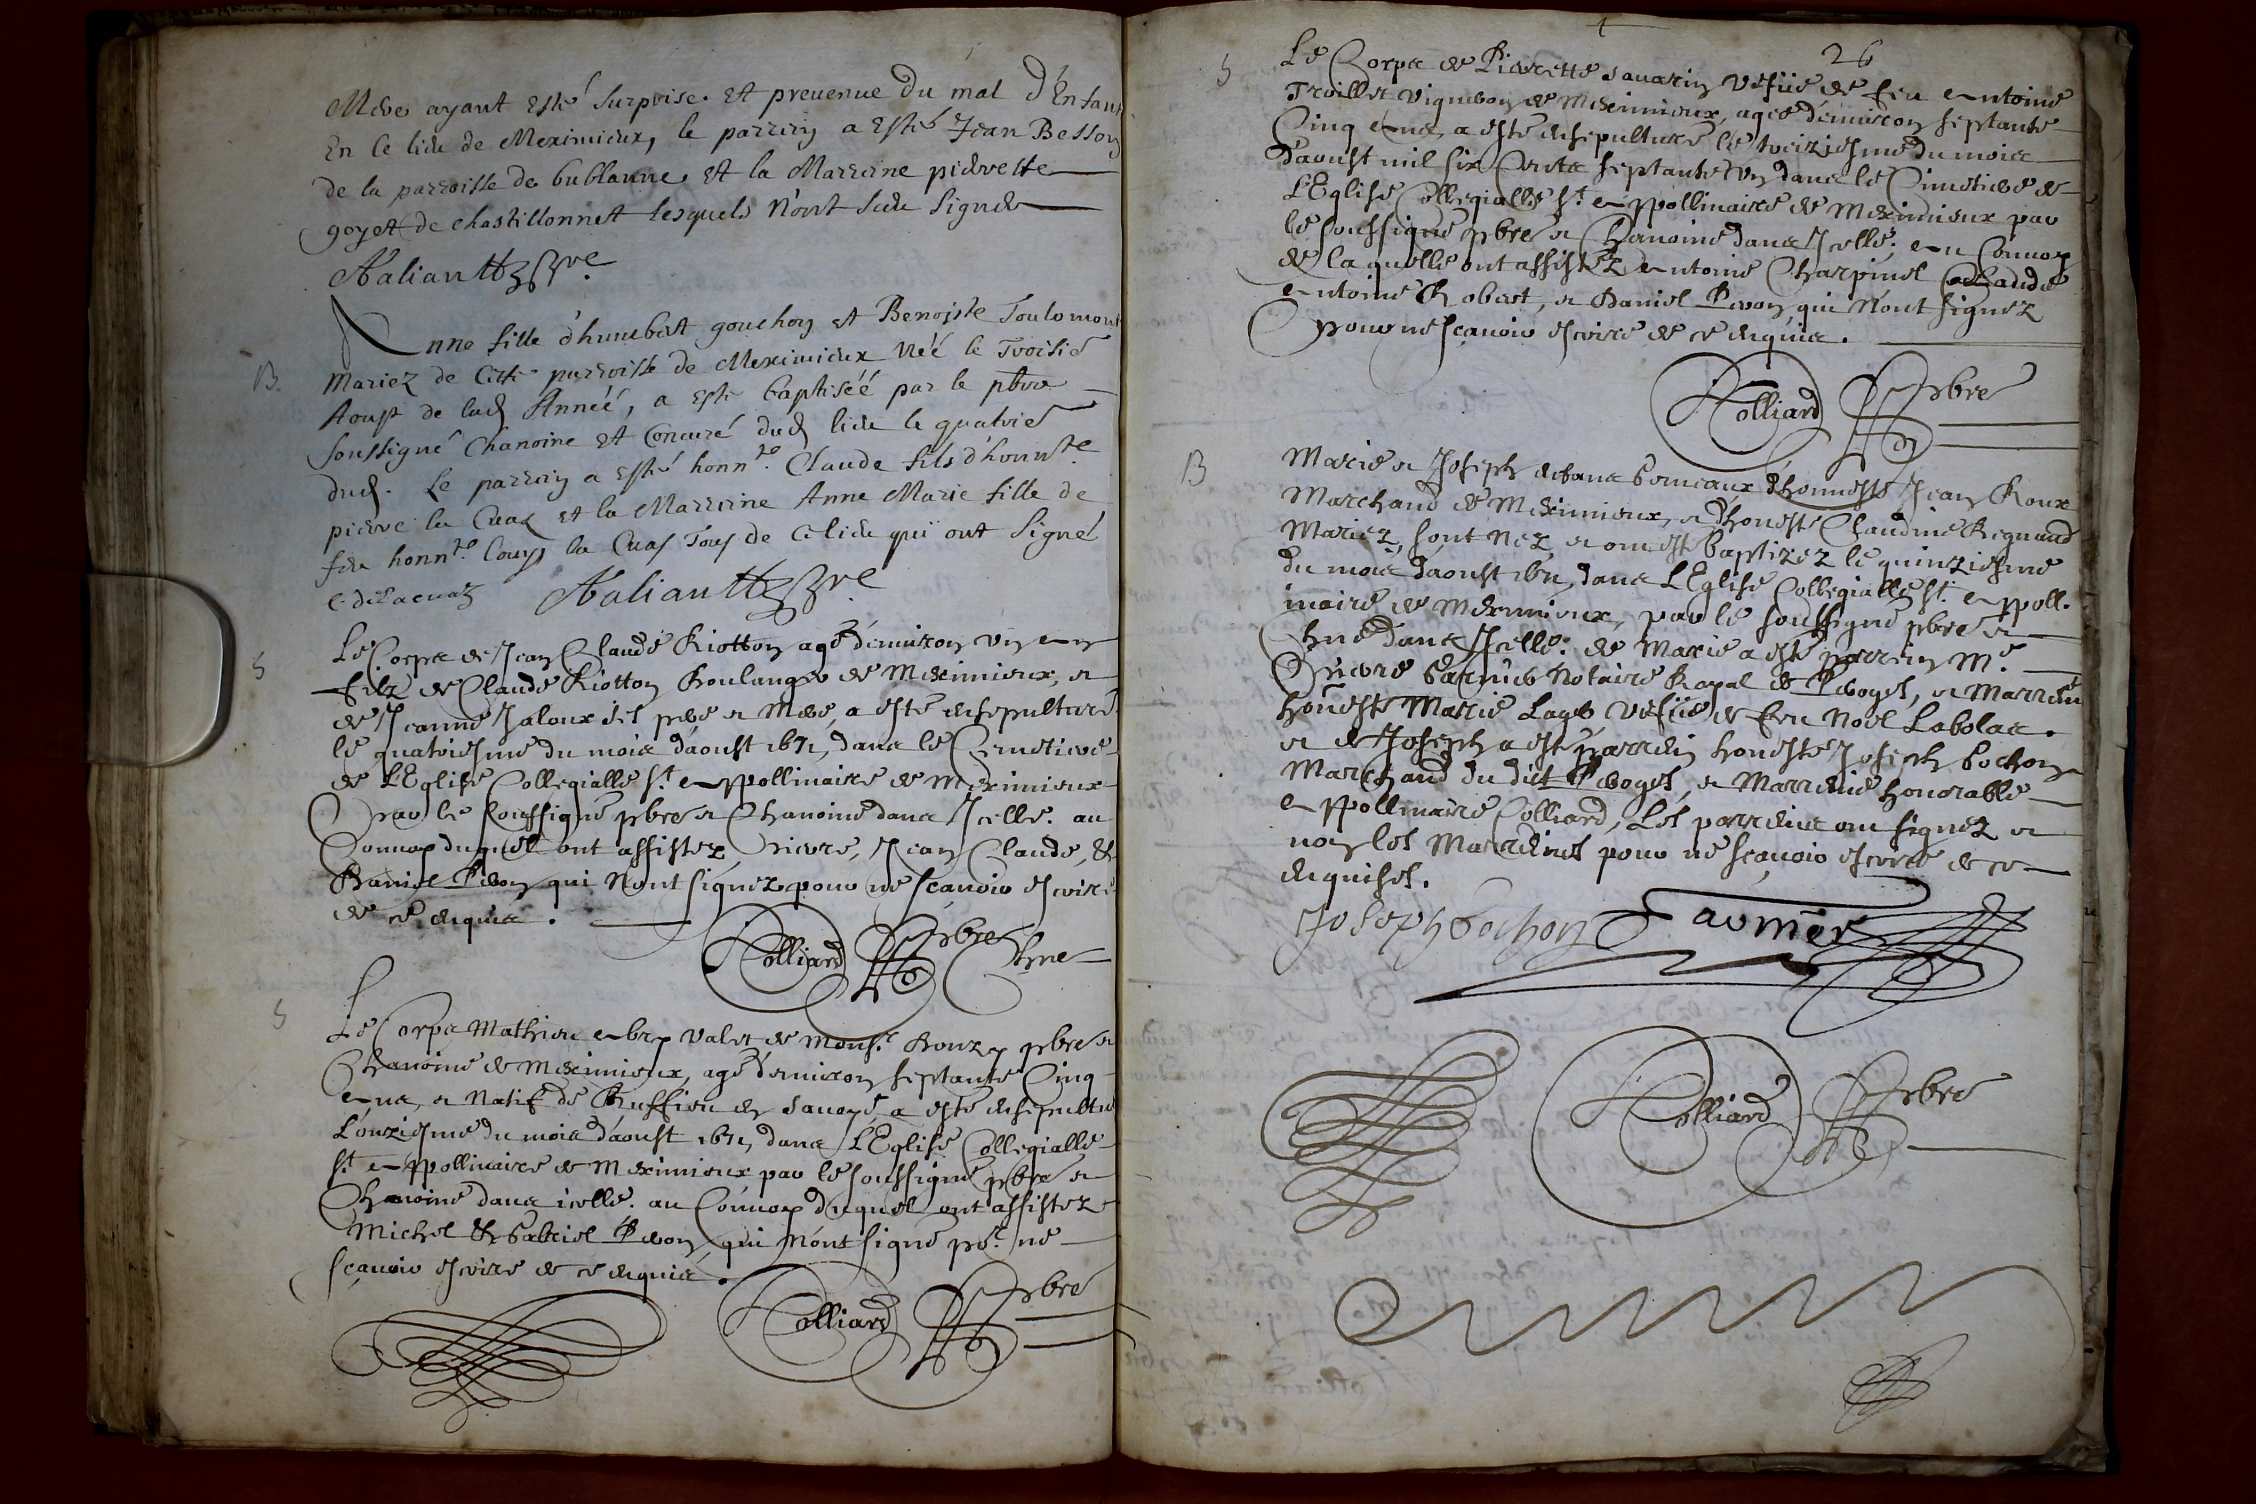 Mere ayant esté surprise et preuenue du mal d'Enfans
En ce lieu de Meximieux, le parrein a esté Jean Besson
de la parroisse de bublanne et la Marreine pierrette
goyet de chastillonnet lesquels n'ont sceu signer
B.
Anne fille d'humbert gouchon et Benoiste Toulomont
Mariez de cette parroisse de Meximieux Néé le Troisie
Aoust de lad Année, a esté baptiséé par le pbre
soussigné Chanoine et Concuré dud lieu le quatrie
dud. Le parrein a esté honnte. Claude fils d'honnte
pierre la Cuaz et la Marreine Anne Marie fille de
feu honnte. Louys la Cuas Tous de ce lieu qui ont signé
C. de Lacuaz
S
Le Corps de Jean Claude Riotton agé d'enuiron un an
filz de Claude Riotton Boulanger de Meximieux, et
de Jeanne Jaloux ses pere et Mere, a esté ensepulturé
le quatriesme du mois d'aoust 1671, dans le Cimetiere
de L'Eglise Collegialle St. Appollinaire de Meximieux
Par le soussigné pbre et Chanoine dans Icelle. au
Conuoy duquel ont assistez, Pierre, Jean Claude, et
Daniel Peron qui n'ont signez pour ne sçauoir escrire
de ce enquis.
Colliard Pbre Chne
S
Le Corps Mathieu Abry Valet de Monsr. Bouzy pbre et
Chanoine de Meximieux, agé d'enuiron septante Cinq
Ans, et Natif de Ruffieu en Sauoye a esté ensepultu
L'onziesme du mois d'aoust 1671, dans L'Eglise Collegialle
St. Appollinaire de Meximieux par le soussigné pbre et
Chanoine dans icelle. au Conuoy duquel ont assistez
Michel et Gabriel Peron, qui n'ont signé pr. ne
sçauoir escrire de ce enquis.
Colliard Pbre
26
S
Le Corps de Pierrette Sauarin Vefue de feu Antoine
Troillet Vigneron de Meximieux, agée d'enuiron septante
Cinq Ans, a esté ensepulturé le treiziesme du mois
d'aoust mil six Cents septante Un dans le Cimetiere de
L'Eglise Collegialle St. Appollinaire de Meximieux par
le soussigné pbre et Chanoine dans Icelle. Au Conuoy
de laquelle ont assistez Antoine Charpinel
Antoine Robert, et Daniel Peron qui n'ont signez
pour ne sçauoir escrire de ce enquis.
Colliard Pbre
B
Marie et Joseph enfans bomeaux d'honneste Jean Roux
Marchand de Meximieux, et d'honeste Claudine Regnaud
Mariez, sont Nez et ont esté baptizez le quinziesme
du mois d'aoust 1671, dans L'Eglise Collegialle St. Appoll.
inaire de Meximieux, par le soussigné pbre et
Chne dans Icelle. de Marie a esté parrein Me.
Pierre Notaire Royal de Peroges, et Marreine
honeste Marie Lager Vefue de feu Noel Labolas.
et de Joseph a esté parrein honeste Joseph bochon
Marchand du dict Peroges, et Marreine honorable
Appollinaire Colliard, Les parreins ont signez et
non les Marreines pour ne sçauoir escrire de ce
enquises.
Joseph bochon
Colliard Pbre